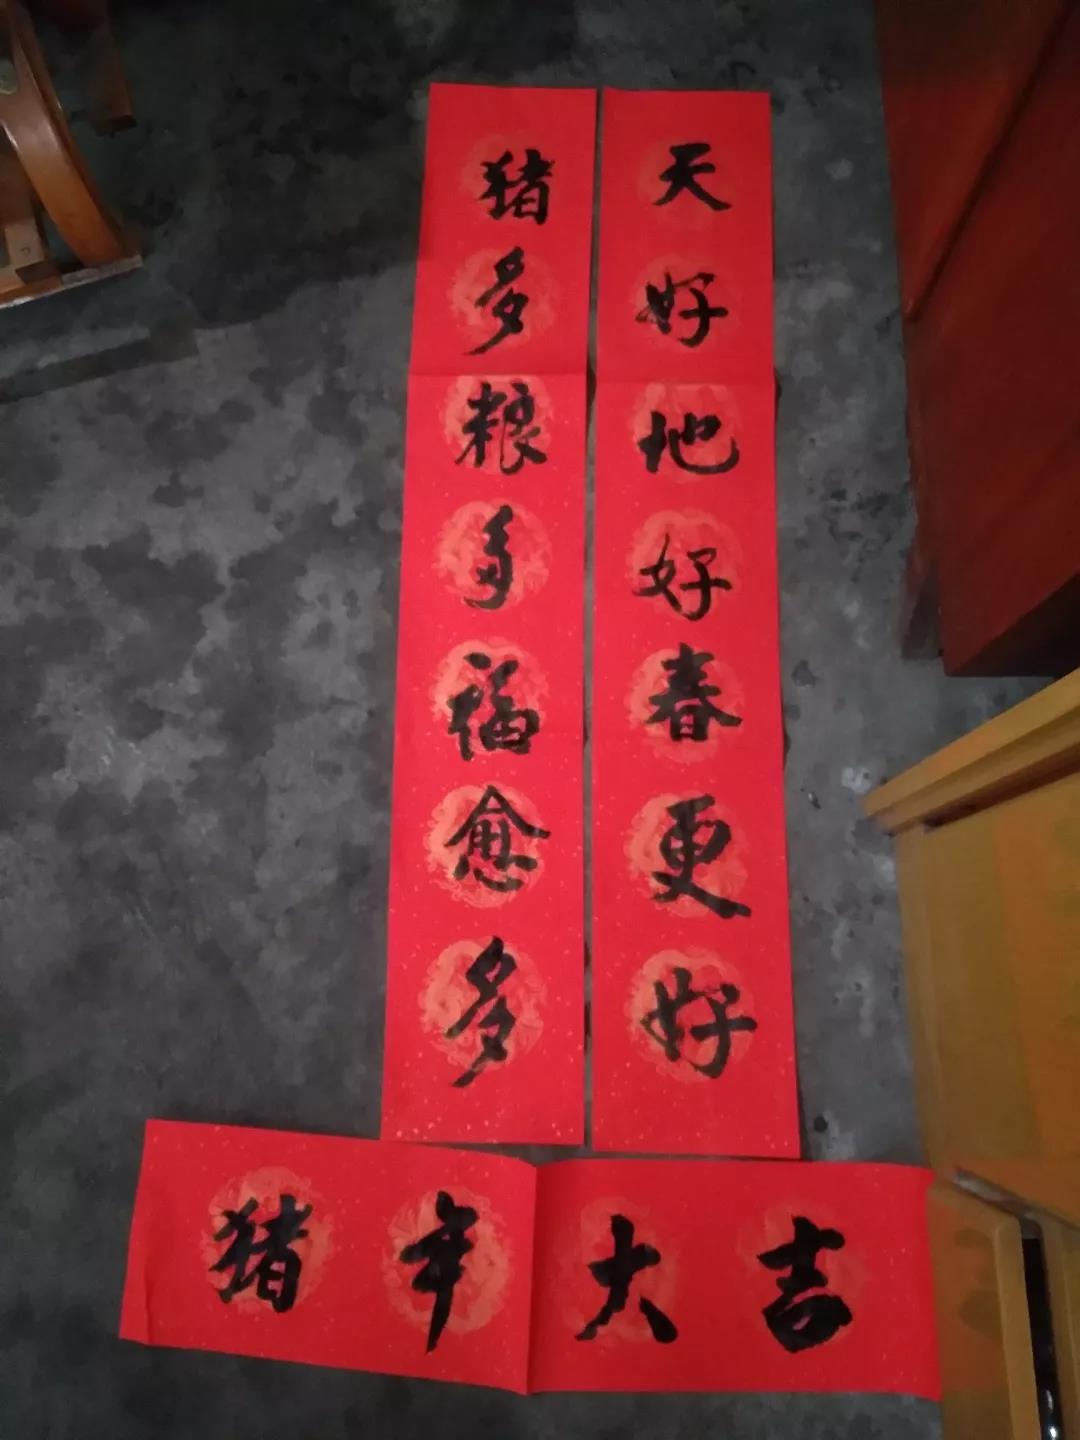 天好地好春更好
猪多粮多福愈多
猪年大吉